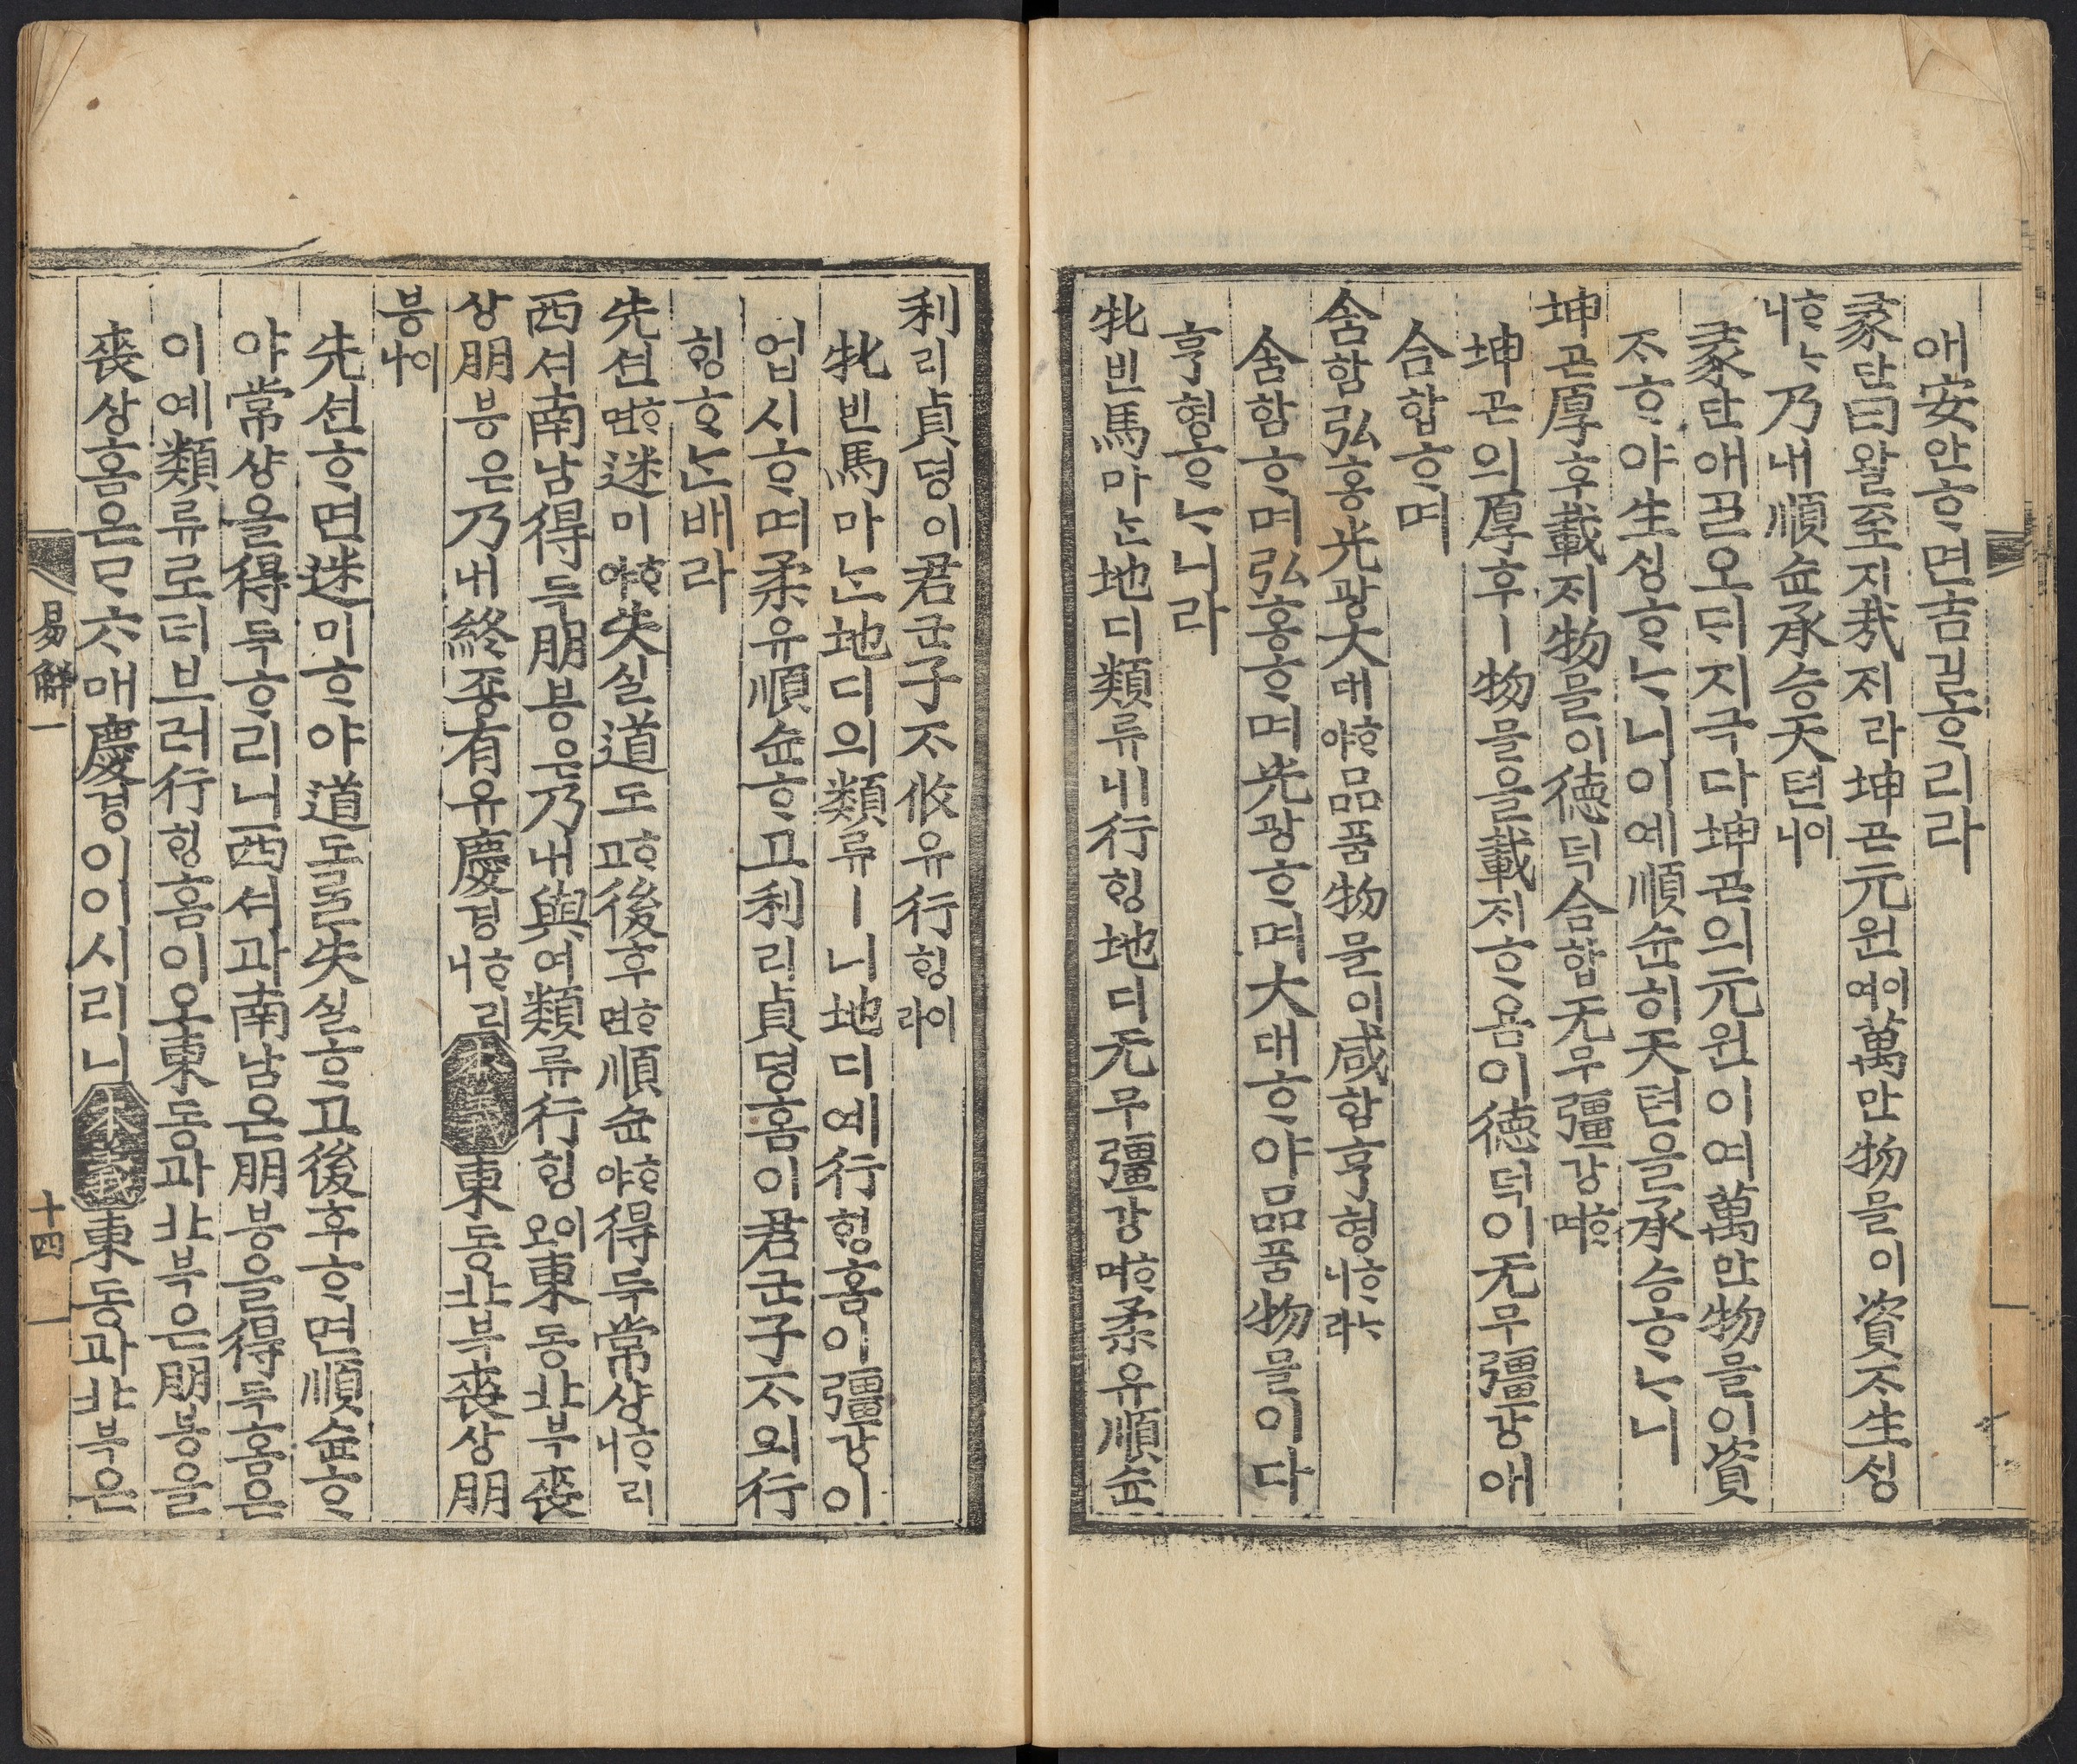 애安안ᄒᆞ면吉길ᄒᆞ리라
彖단曰왈至지哉ᄌᆡ라坤곤元원이여萬만物믈이資ᄌᆞ生ᄉᆡᆼ
ᄒᆞᄂᆞ니乃내順슌承승天텬이니
彖단애ᄀᆞᆯ오ᄃᆡ지극다坤곤의元원이여萬만物믈이資
ᄌᆞᄒᆞ야生ᄉᆡᆼᄒᆞᄂᆞ니이예順슌히天텬을承승ᄒᆞᄂᆞ니
坤곤厚후載ᄌᆡ物믈이德덕合합无무疆강ᄒᆞ며
坤곤의厚후ㅣ物믈을載ᄌᆡᄒᆞ욤이德덕이无무疆강애
合합ᄒᆞ며
含함弘홍光광大대ᄒᆞ야品픔物믈이咸함亨형ᄒᆞᄂᆞ니라
含함ᄒᆞ며弘홍ᄒᆞ며光광ᄒᆞ며大대ᄒᆞ야品픔物믈이다
亨형ᄒᆞᄂᆞ니라
牝빈馬마ᄂᆞᆫ地디類류ㅣ니行ᄒᆡᆼ地디无무疆강ᄒᆞ며柔유順슌
利리貞뎡이君군子ᄌᆞ攸유行ᄒᆡᆼ이라
牝빈馬마ᄂᆞᆫ地디의類류ㅣ니地디예行ᄒᆡᆼ홈이疆강이
업시ᄒᆞ며柔유順슌ᄒᆞ고利리貞뎡홈이君군子ᄌᆞ의行
ᄒᆡᆼᄒᆞᄂᆞᆫ배라
先션ᄒᆞ면迷미ᄒᆞ야失실道도ᄒᆞ고後후ᄒᆞ면順슌ᄒᆞ야得득常샹ᄒᆞ리니
西셔南남得득朋붕은乃내與여類류行ᄒᆡᆼ이오東동北븍喪
상朋붕은乃내終죵有유慶경ᄒᆞ리니本義東동北븍喪상朋
붕이나
先션ᄒᆞ면迷미ᄒᆞ야道도를失실ᄒᆞ고後후ᄒᆞ면順슌ᄒᆞ
야常샹을得득ᄒᆞ리니西셔과南남은朋붕을得득홈은
이예類류로더브러行ᄒᆡᆼ홈이오東동과北븍은朋붕을
喪상홈은ᄆᆞᄎᆞᆷ애慶경이이시리니本義東동과北븍은
易解一
十四